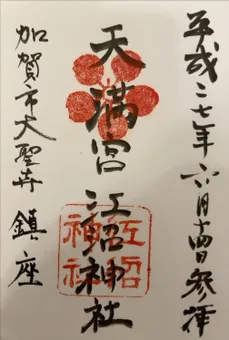 平成二七年六月十四日参拝
天満宮 江沼神社
加賀市大聖寺 鎮座
江沼
神社